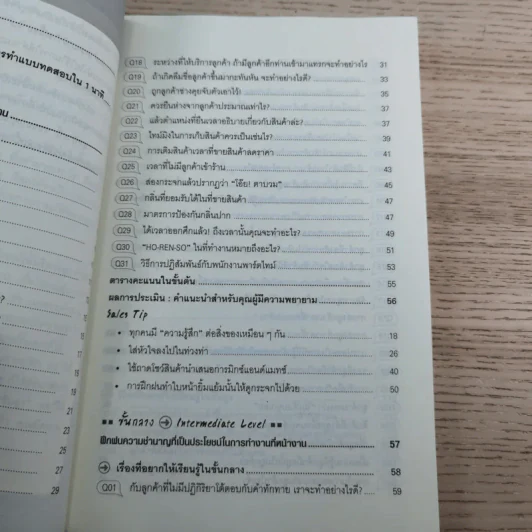 รทำแบบทดสอบใน 1 นาที
Q18 ระหว่างที่ให้บริการลูกค้า ถ้ามีลูกค้าอีกท่านเข้ามาแทรกจะทำอย่างไร 31
Q19 ถ้าเกิดลืมชื่อลูกค้าขึ้นมากะทันหัน จะทำอย่างไรดี? 33
Q20 ถูกลูกค้าช่างคุยจับตัวเอาไว้ 35
Q21 ควรยืนห่างจากลูกค้าประมาณเท่าไร? 37
Q22 แล้วตำแหน่งที่ยืนเวลาอธิบายเกี่ยวกับสินค้าล่ะ? 37
Q23 ไหนมือในการเก็บสินค้าควรเป็นเช่นไร? 39
Q24 การเติมสินค้าเวลาที่ขายสินค้าลดราคา 41
Q25 เวลาที่ไม่มีลูกค้าเข้าร้าน 43
Q26 ส่องกระจกแล้วปรากฏว่า "โอ๊ย! ตาบวม" 45
Q27 กลิ่นที่ยอมรับได้ในที่ขายสินค้า 47
Q28 มาตรการป้องกันกลิ่นปาก 47
Q29 ได้เวลาออกศึกแล้ว! ถึงเวลานั้นคุณจะทำอะไร? 49
Q30 "HO-REN-SO" ในที่ทำงานหมายถึงอะไร? 51
Q31 วิธีการปฏิสัมพันธ์กับพนักงานพาร์ตไทม์ 53
ตารางคะแนนในขั้นต้น 55
ผลการประเมิน : คำแนะนำสำหรับคุณผู้มีความพยายาม 56
Sales Tip
• ทุกคนมี "ความรู้สึก" ต่อสิ่งของเหมือน ๆ กัน 16
• ใส่หัวใจลงไปในท่วงท่า 26
• ใช้ถาดโชว์สินค้านำเสนอการมิกซ์แอนด์แมทช์ 40
• การฝึกฝนทำใบหน้ายิ้มแย้มนั้นให้ดูกระจกไปด้วย 50
ขั้นกลาง Intermediate Level
ฝึกฝนความชำนาญที่เป็นประโยชน์ในการทำงานที่หน้างาน 57
เรื่องที่อยากให้เรียนรู้ในขั้นกลาง 58
Q01 กับลูกค้าที่ไม่มีปฏิกิริยาโต้ตอบกับคำทักทาย เราจะทำอย่างไรดี? 59
25
27
29